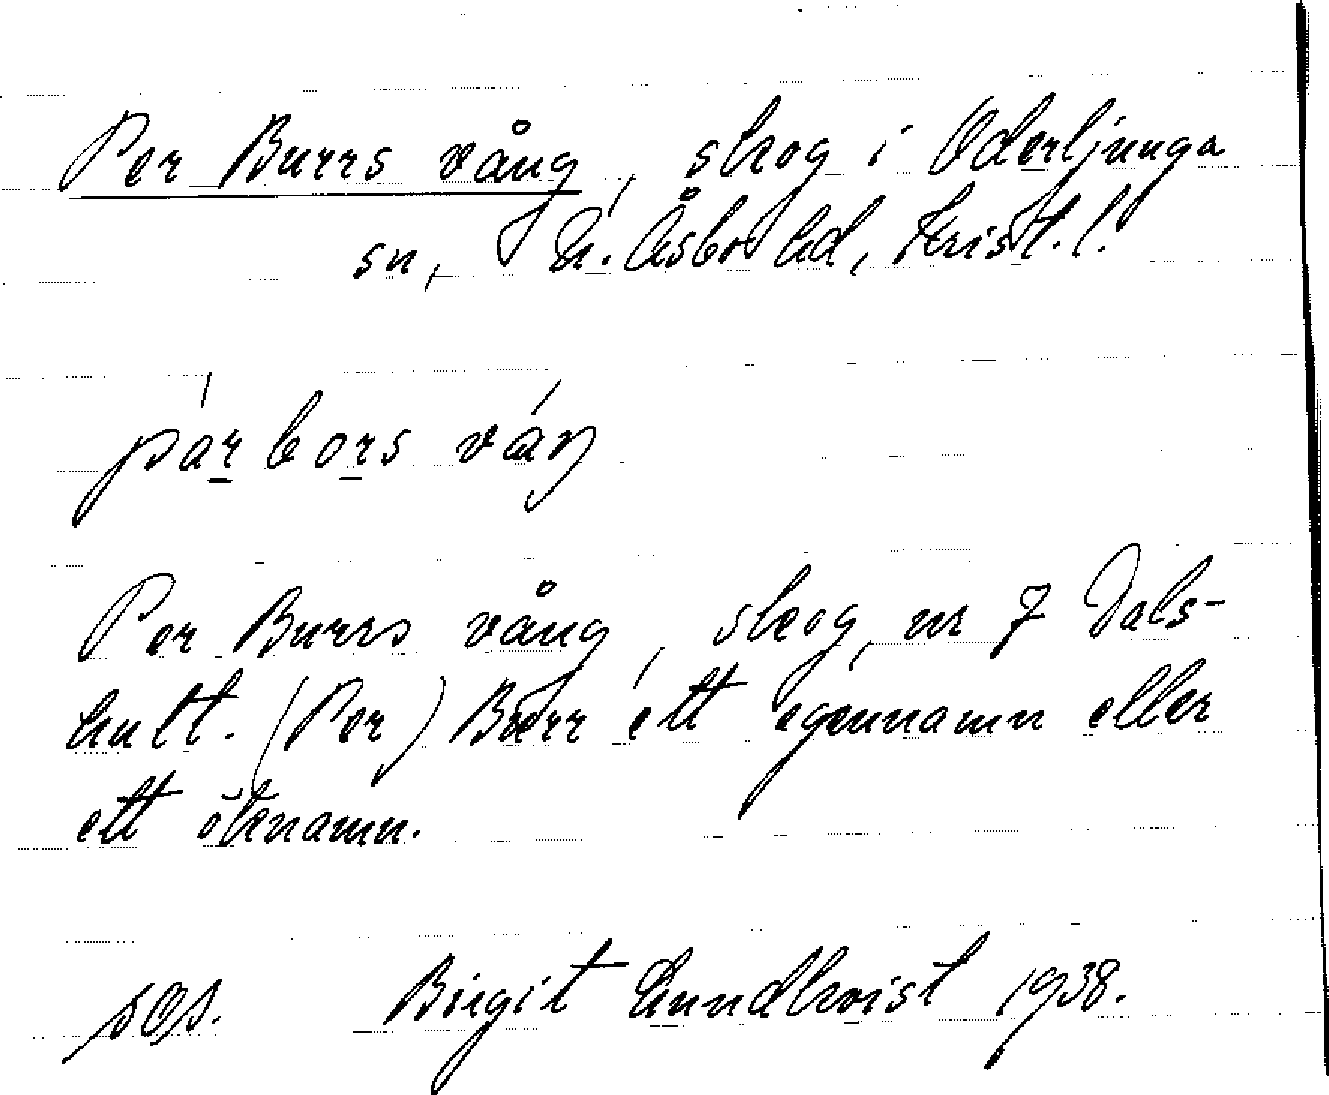 Per Burrs vång, skog i Oderljunga
sn, N. Åsbo hd, Krist. l.
pár bors váŋ
Per Burrs vång, skog, nr 7 Dals-
hult. (Per) Burr ett egennamn eller
ett öknamn.
sOs. Birgit Lundkvist 1938.